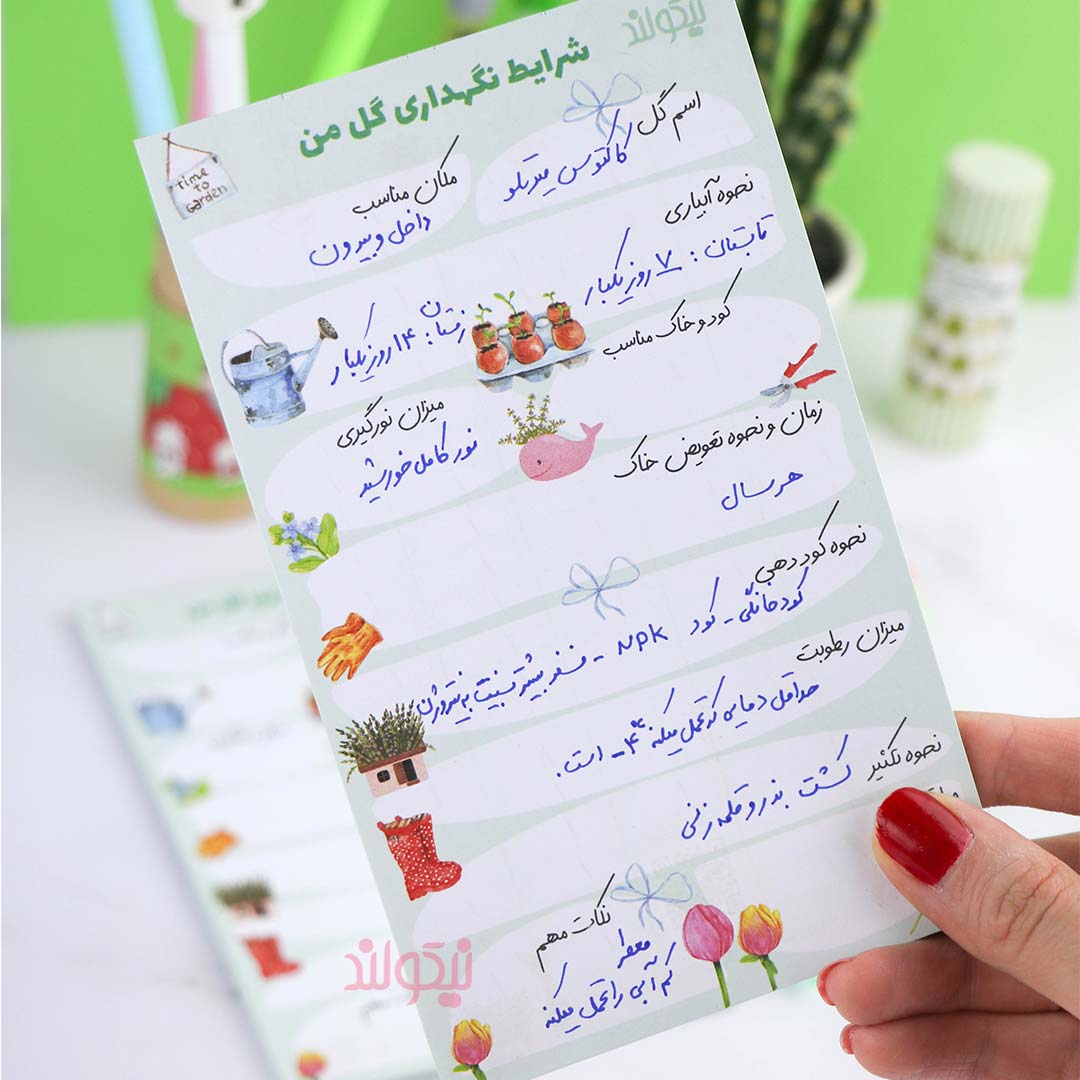 نیکولند
شرایط نگهداری گل من
Time
to
Garden
اسم گل
کاکتوس میرتیلو
مکان مناسب
داخل و بیرون
نحوه آبیاری
تابستان : ۷ روز یکبار
زمستان : ۱۴ روز یکبار
کود و خاک مناسب
میزان نورگیری
نور کامل خورشید
زمان و نحوه تعویض خاک
هر سال
نحوه کود دهی
کود خانگی - کود NPK - فسفر بیشتر نسبت به نیتروژن
میزان رطوبت
حداقل دمایی که تحمل میکنه ۴- است.
نحوه تکثیر
کشت بذر و قلمه زنی
نکات مهم
معطر
کم آبی را تحمل میکنه
نیکولند